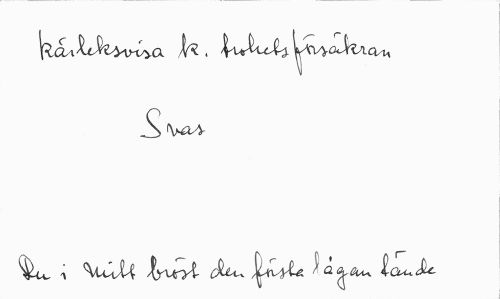 kärleksvisa k. trohetsförsäkran
Svar
Du i mitt bröst den första lågan tände